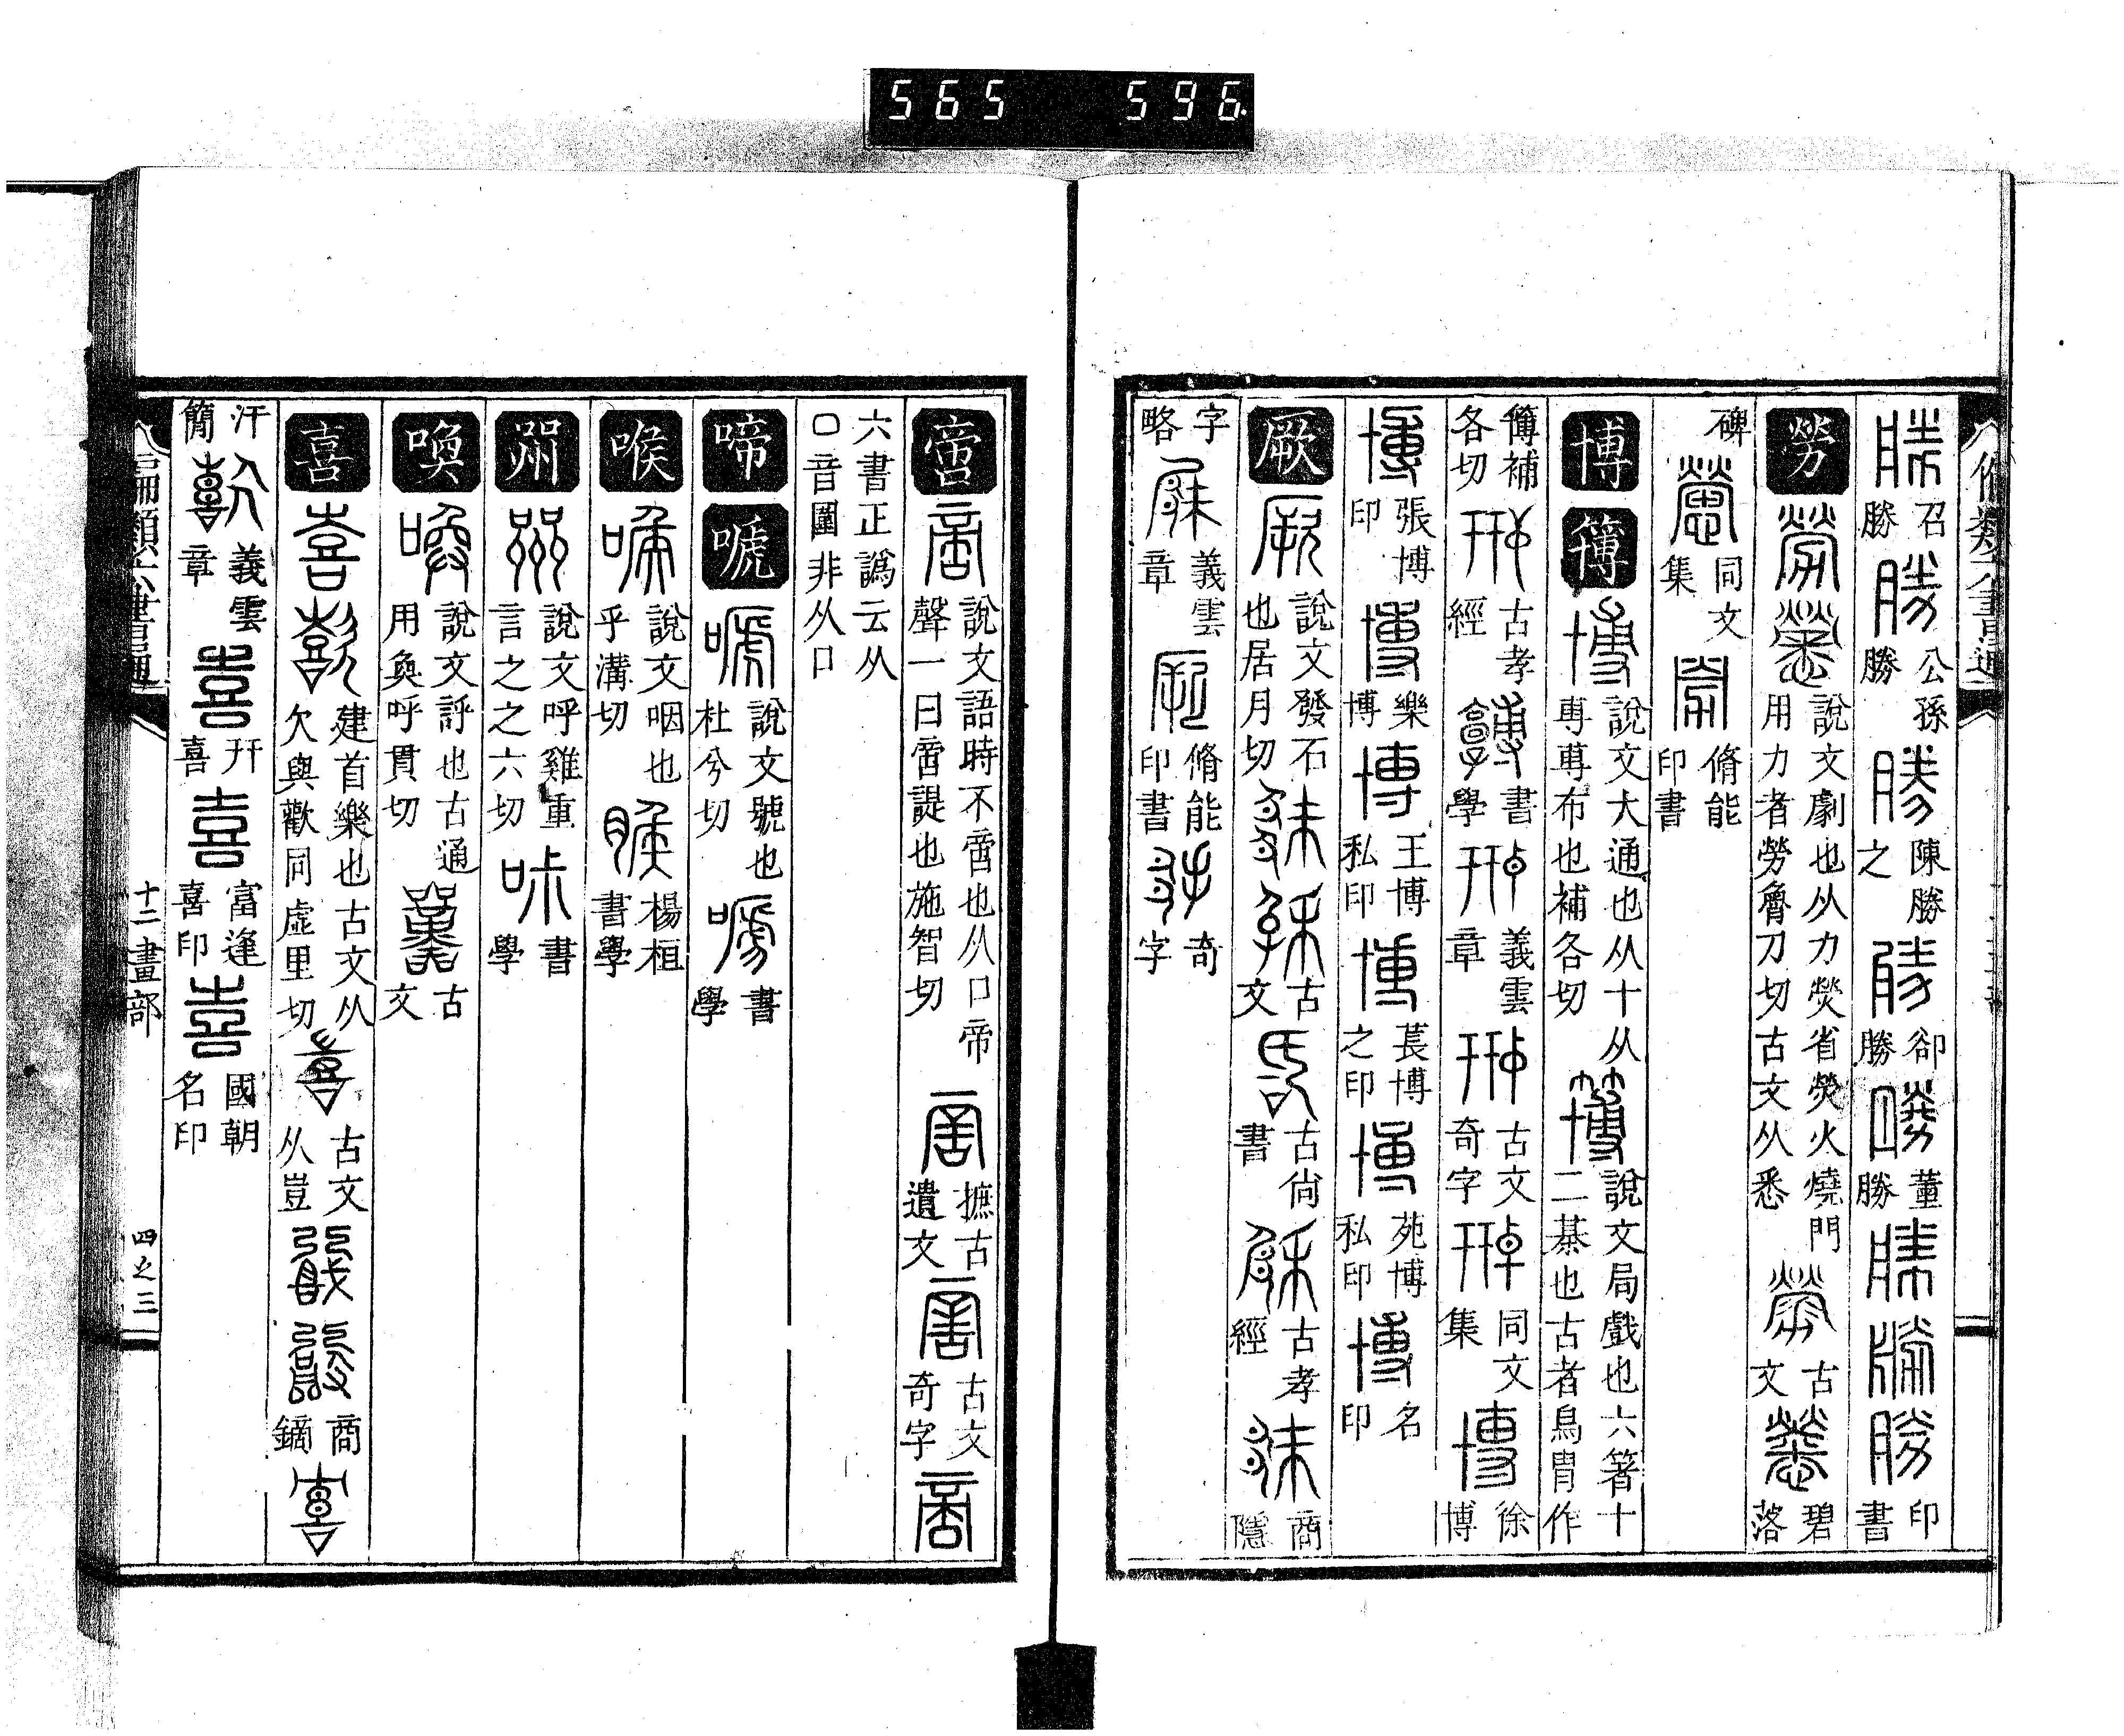 565 596
召勝 公孫勝 陳勝之 卻勝 董勝 印書
勞 說文劇也从力熒省熒火燒門用力者勞魯刀切古文从悉 古文 碧落
碑 同文集 脩能印書
博 簙 說文大通也从十从尃尃布也補各切 說文局戲也六箸十二棊也古者烏冑作
簙補各切 古孝經 書學 義雲章 古文奇字 同文集 徐博
張博印 樂博 王博私印 萇博之印 苑博私印 名印
厥 說文發石也居月切 古文 古尙書 古孝經 商隱
字略 義雲章 脩能印書 奇字
啻 說文語時不啻也从口帝聲一曰啻諟也施智切 摭古遺文 古文奇字
六書正譌云从口音圍非从口
啼 嗁 說文號也杜兮切 書學
喉 說文咽也乎溝切 楊桓書學
喌 說文呼雞重言之之六切 書學
喚 說文評也古通用奐呼貫切 古文
喜 建首樂也古文从欠與歡同虛里切 古文从豈 商鏑
汗簡 義雲章 幵喜 富逢喜印 國朝名印
十二畫部
四之三